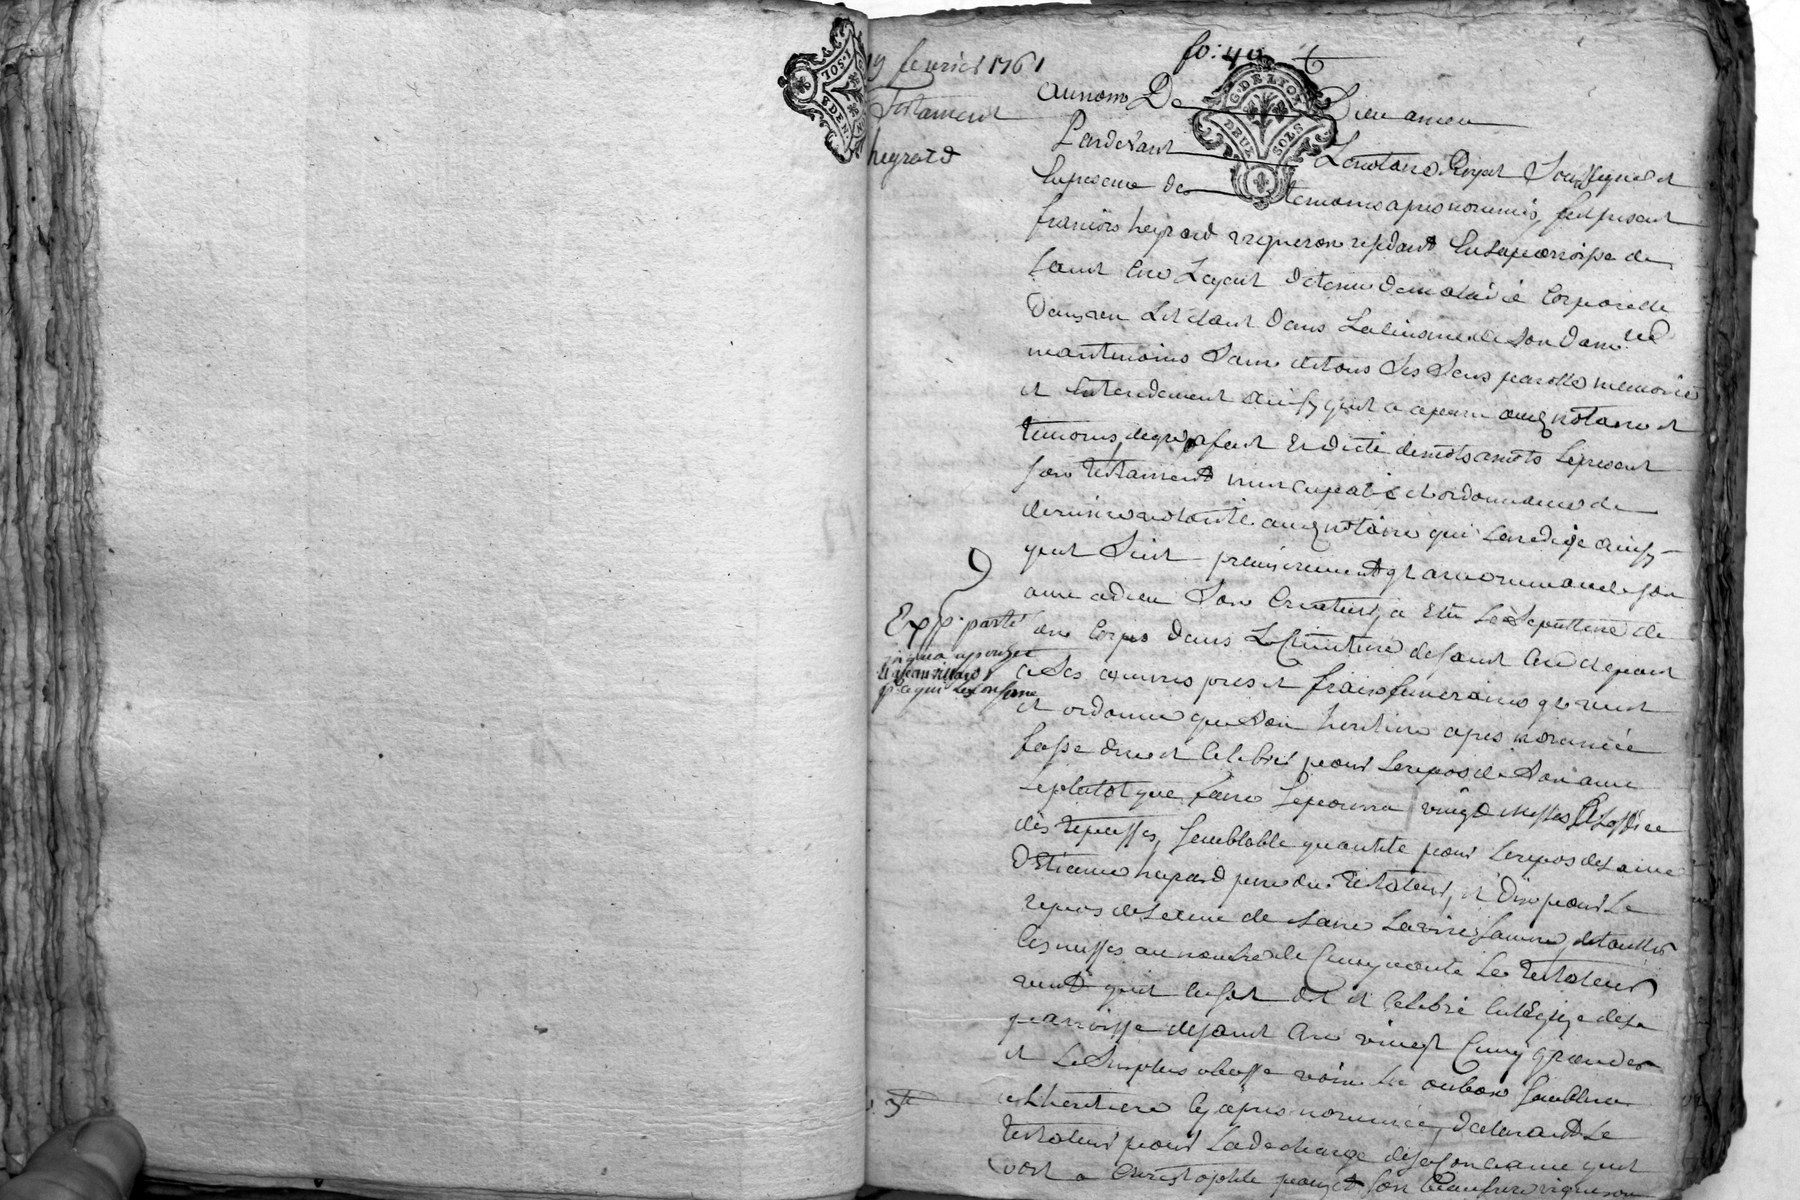 19 fevrier 1761
Testament
heyrard
fo: 40
G. DE LYON
DEUX SOLS
I. SOL
EDEN.
au nom De Dieu amen
Pardevant Le notaire Royal Soussigné et
En presence des temoins apres nommés, fut present
françois heyrard vigneron residant En la parroisse de
saint Cire Lequel detenu de maladie Corporelle
Dans un Lit étant dans La Cuisine de Son domicile
neantmoins Sain de tous Ses Sens parolle memoire
et Entendement ainsy qu'il a aparu auxq notaire et
temoins, de gré a fait Et dicté de mots a mots Le present
son testament nuncupatif et ordonnance de
derniere volonté auq notaire qui La redigé ainsy
quil Suit premierement a recommandé son
ame a dieu Son Createur, a Elu La Sepulture de
son Corps dans Le Cimetiere de saint Cire et quant
a Ses œuvres pies et frais funeraires veut
et ordonne que Son heritiere apres nommée
fasse dire et Celebrer pour Le repos de Son ame
le plutot que faire Se pourra vingt Messes
des trepassés, Semblable quantité pour Le repos de Lame
D'Etienne heyrard pere du testateur, et Dix pour Le
repos de Lame de Sa femme, de touttes
Les messes au nombre de Cinquante Le testateur
veut quil En soit dit et Celebré En L'Eglize de la
parroisse de saint Cire vingt Cinq grandes
et Le Surplus a basse voix La ou bon Semblera
a L'heritiere Cy apres nommée, declarant Le
testateur pour La decharge de sa Conscience quil
doit a Christophle pouzet Son Beaufrere vigneron
Exp. parté